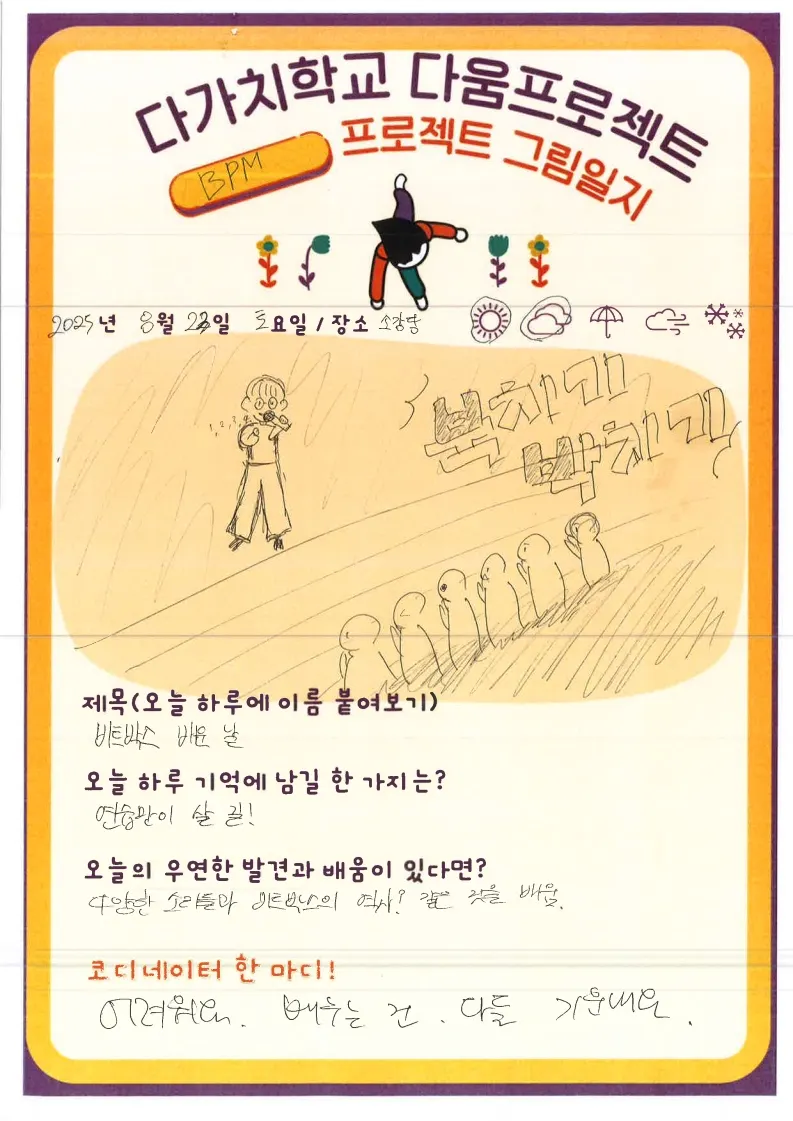 다가치학교 다움프로젝트
프로젝트 그림일지
BPM
2025년 8월 23일 토요일 / 장소 소강당
1, 2, 3, 4
북치기
박치기
제목(오늘 하루에 이름 붙여보기)
비트박스 배운 날
오늘 하루 기억에 남길 한 가지는?
연습만이 살 길!
오늘의 우연한 발견과 배움이 있다면?
다양한 소리들과 비트박스의 역사? 같은 것을 배움.
코디네이터 한 마디!
어려워요. 배우는 건. 다들 기운내요.